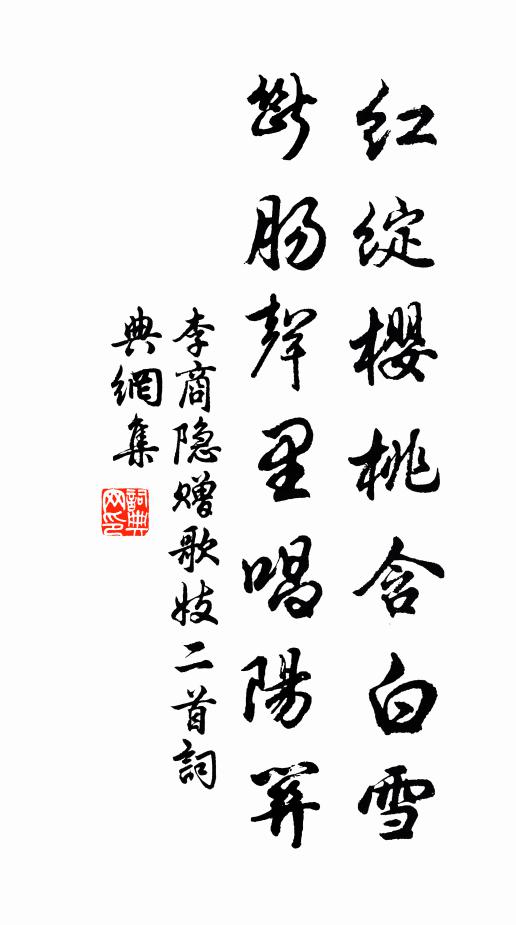 红绽樱桃含白雪
断肠聲里唱陽関
李商隐赠歌妓二首詞
典網集
詞典网印